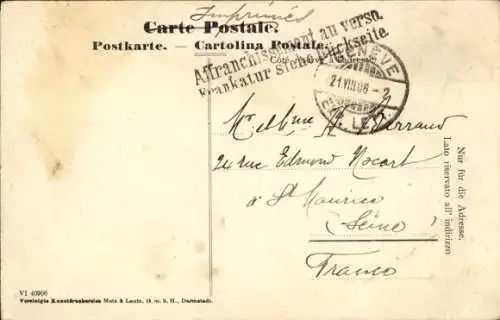 Imprimés
Carte Postale.
Postkarte. — Cartolina Postale.
Affranchissement au verso.
Frankatur siehe Rückseite.
GENÈVE
21.VIII.08 - 2
LETT.
24 rue Edmond Nocart
à St Maurice
(Seine)
France
Nur für die Adresse.
Lato riservato all' indirizzo
VI 40906
Vereinigte Kunstdruckereien Metz & Lautz, G. m. b. H., Darmstadt.